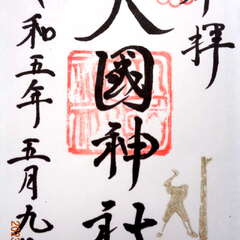 奉拝
大國神社
令和五年五月九日